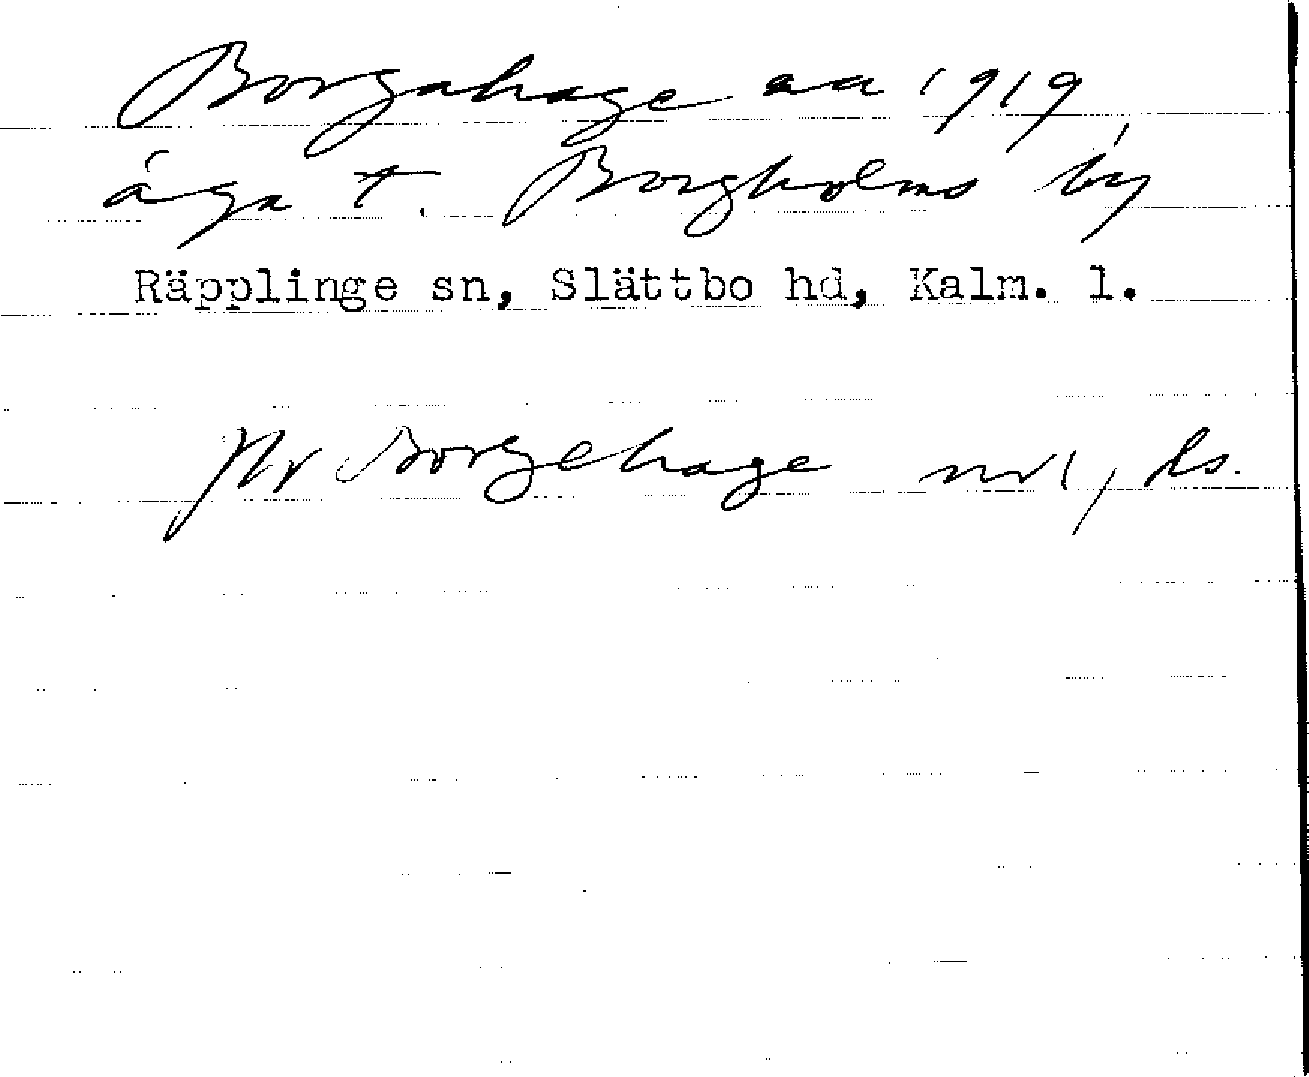 Borgahage aa 1919,
äga t. Borgholms by
Räpplinge sn, Slättbo hd, Kalm. l.
jfr Borgehage nr 1, ds.